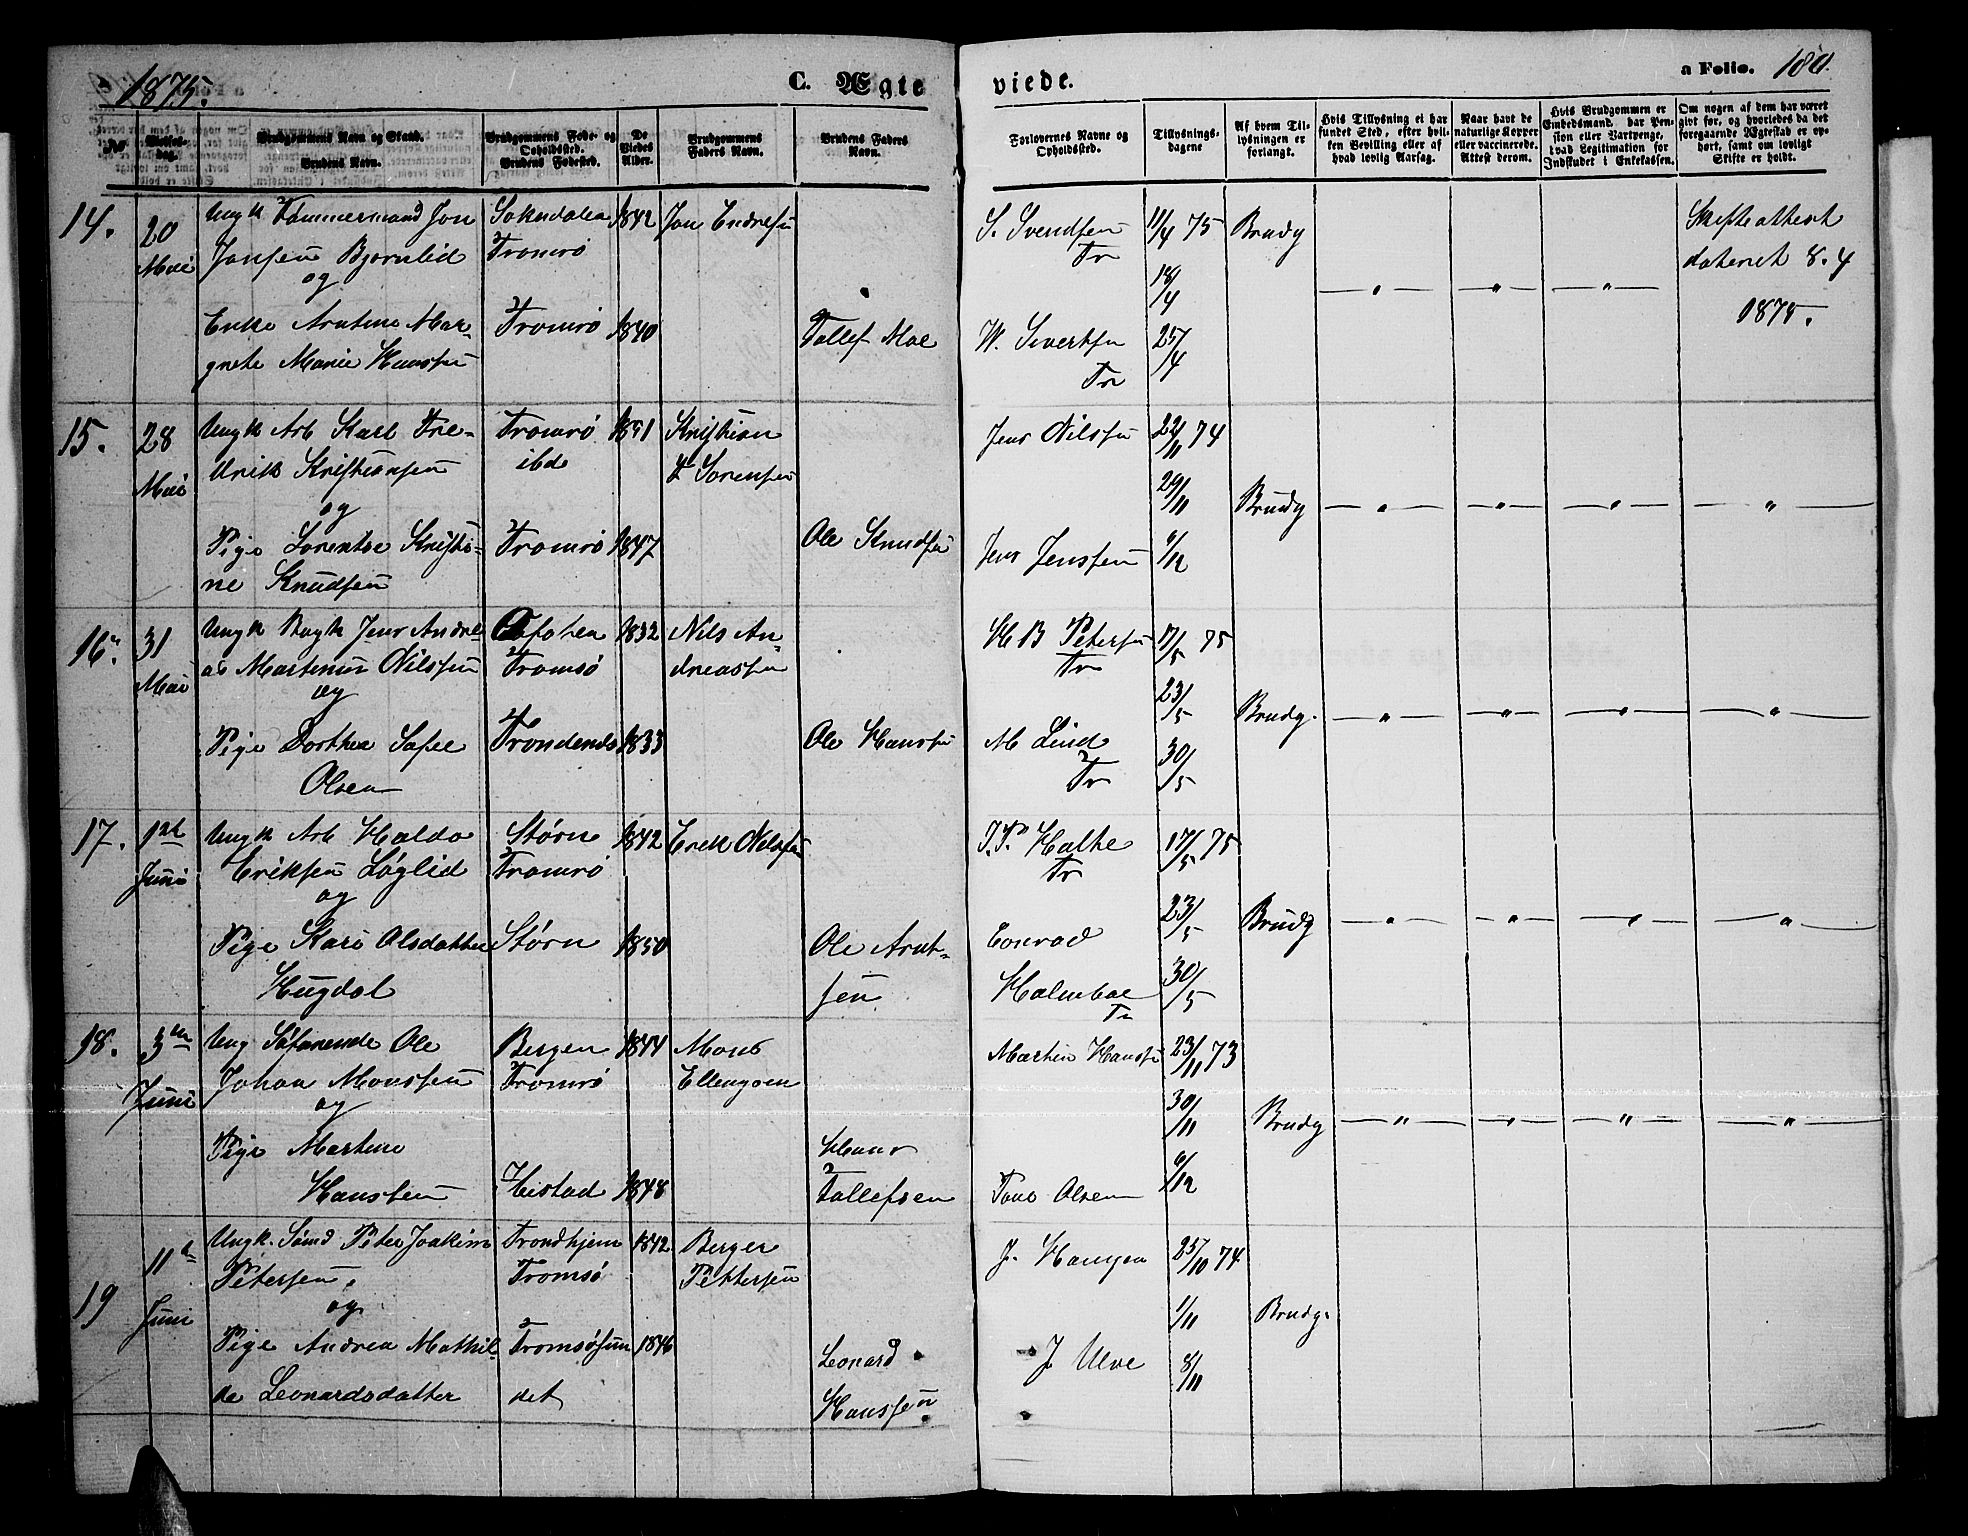 1875.
C. Ægte
viede.
a Folio. 180.
No
Vielses-
dag.
Brudgommens Navn og Stand.
Brudens Navn.
Brudgommens Føde- og
Opholdssted.
Brudens Fødested.
De
Viedes
Alder.
Brudgommens
Faders Navn.
Brudens Faders
Navn.
Forlovernes Navne og
Opholdssted.
Tillysnings-
dagene
Af hvem Til-
lysningen er
forlangt.
Hvis Tillysning ei har
fundet Sted, efter hvil-
ken Bevilling eller af
hvad lovlig Aarsag.
Naar havt de
naturlige Kopper
eller vaccinerede.
Attest derom.
Hvis Brudgommen er
Embedsmand, har Pen-
sion eller Vartpenge,
hvad Legitimation for
Indskudet i Enkekassen.
Om nogen af dem har været
givt før, og hvorledes da det
foregaaende Ægteskab er op-
hørt, samt om lovligt
Skifte er holdt.
14.
20
Mai
Ungk Tømmermand Jon
Jonsen Bjørnlid
og
Enke Arntine Mar-
grete Marie Hansen
Soknedalen
Tromsø
Tromsø
1842
1840
Jon Endresen
Tollef Moe
S. Svendsen
Tr
W. Sivertsen
Tr
11/4 75
18/4
25/4
Brudg
Skifteattest
dateret 8.4
1875.
15.
28
Mai
Ungk Arb Karl Fre-
derik Kristiansen
og
Pige Lorentse Kristi-
ne Knudsen
Tromsø
ibd
Tromsø
1851
1847
Kristian
F Sørensen
Ole Knudsen
Jens Nilssen
Jens Jenssen
22/11 74
29/11
6/12
Brudg
16.
31
Mai
Ungk Bagk Jens Andre-
as Martenus Nilssen
og
Pige Dorthea Sofie
Olsen
Ofoten
Tromsø
Trondenes
1832
1833
Nils An-
dreassen
Ole Hanssen
H B Petersen
Tr
M Lind
Tr
17/5 75
23/5
30/5
Brudg.
17.
1ste
Juni
Ungk Arb Haldo
Eriksen Løglid
og
Pige Kari Olsdatter
Hugdal
Støren
Tromsø
Støren
1842
1850
Erik Nilssen
Ole Arnt-
sen
J.P. Holke
Tr
Conrad
Holmboe
Tr
17/5 75
23/5
30/5
Brudg
18.
3die
Juni
Ung Søfarende Ole
Johan Monssen
og
Pige Martine
Hanssen
Bergen
Tromsø
Hestad
1844
1848
Mons
Ellengsen
Hans
Tollefsen
Martin Hanssen
Tons Olsen
23/11 73
30/11
6/12
Brudg
19
11te
Juni
Ungk. Sømd Peter Joakim
Petersen.
og
Pige Andrea Mathil-
de Leonardsdatter
Trondhjem
Tromsø
Tromsøsun
det
1842
1846
Berger
Pettersen
Leonard
Hanssen
J. Hansen
J Ulve
25/10 74
1/11
8/11
Brudg.